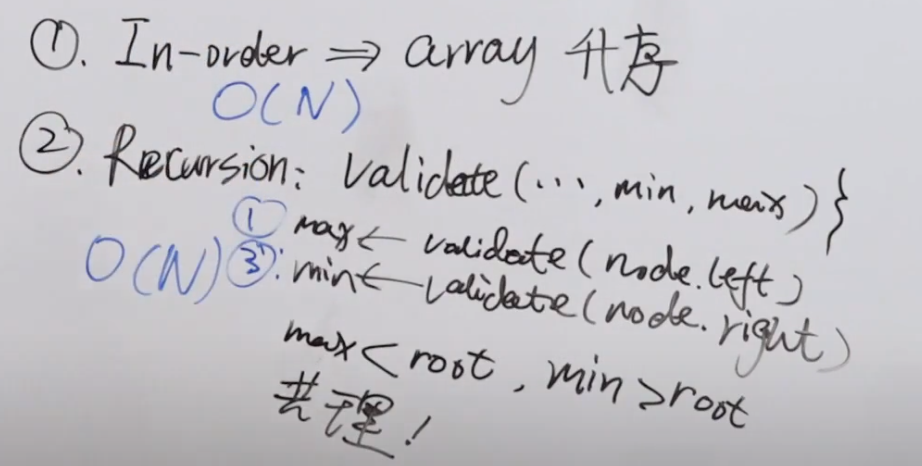 ①. In-order ⇒ array 升序
O(N)
②. Recursion: validate(..., min, max) }
① max ← validate(node.left)
O(N) ③: min ← validate(node.right)
max < root, min > root
理!